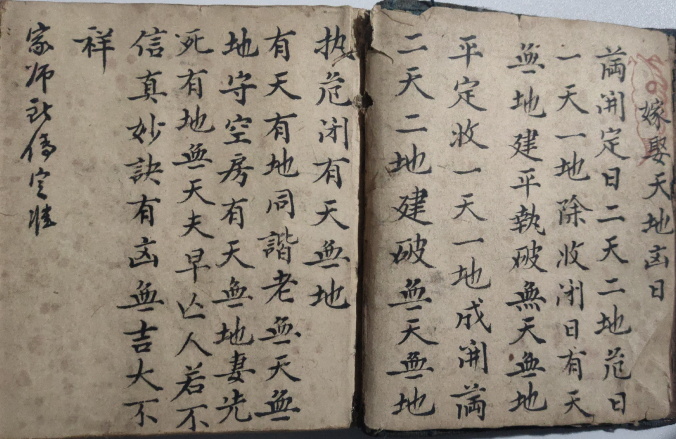 嫁娶天地凶日
满開定日二天二地危日
一天一地除收闭日有天
無地建平執破無天無地
平定收一天一地成開满
二天二地建破無天無地
执危闭有天無地
有天有地同諧老無天無
地守空房有天無地妻先
死有地無天夫早亡人若不
信真妙訣有凶無吉大不
祥
家师